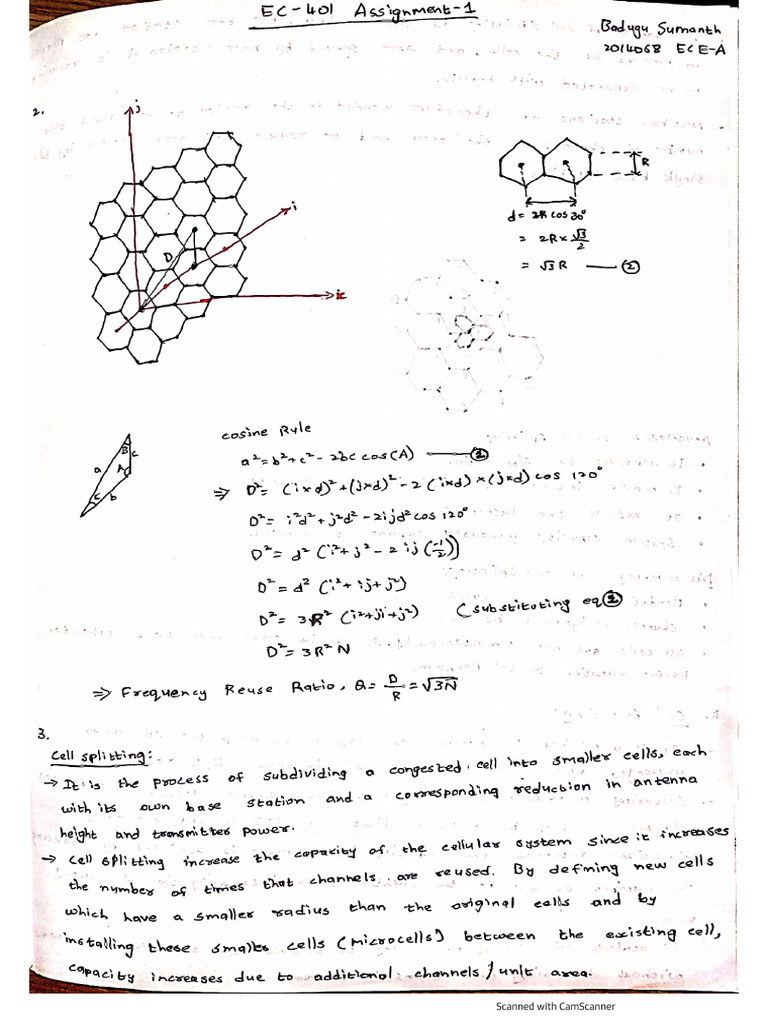 EC-401 Assignment-1
Badugu Sumanth
2014068 ECE-A
2.
j
i
D
R
d = 2R cos 30°
= 2R x √3/2
= √3 R —— ②
a
B
c
A
C
b
cosine Rule
a² = b² + c² - 2bc cos(A) ——
⇒ D² = (i x d)² + (j x d)² - 2 (i x d) x (j x d) cos 120°
D² = i²d² + j²d² - 2ijd² cos 120°
D² = d² (i² + j² - 2 ij (-1/2))
D² = d² (i² + ij + j²)
D² = 3R² (i² + ji + j²) (substituting eq
D² = 3R² N
⇒ Frequency Reuse Ratio, Q = D/R = √3N
3.
Cell splitting:
→ It is the process of subdividing a congested cell into smaller cells, each
with its own base station and a corresponding reduction in antenna
height and transmitter power.
→ cell splitting increase the capacity of the cellular system since it increases
the number of times that channels are reused. By defining new cells
which have a smaller radius than the original cells and by
installing these cells (microcells) between the existing cell,
capacity increases due to additional channels / unit area.
Scanned with CamScanner